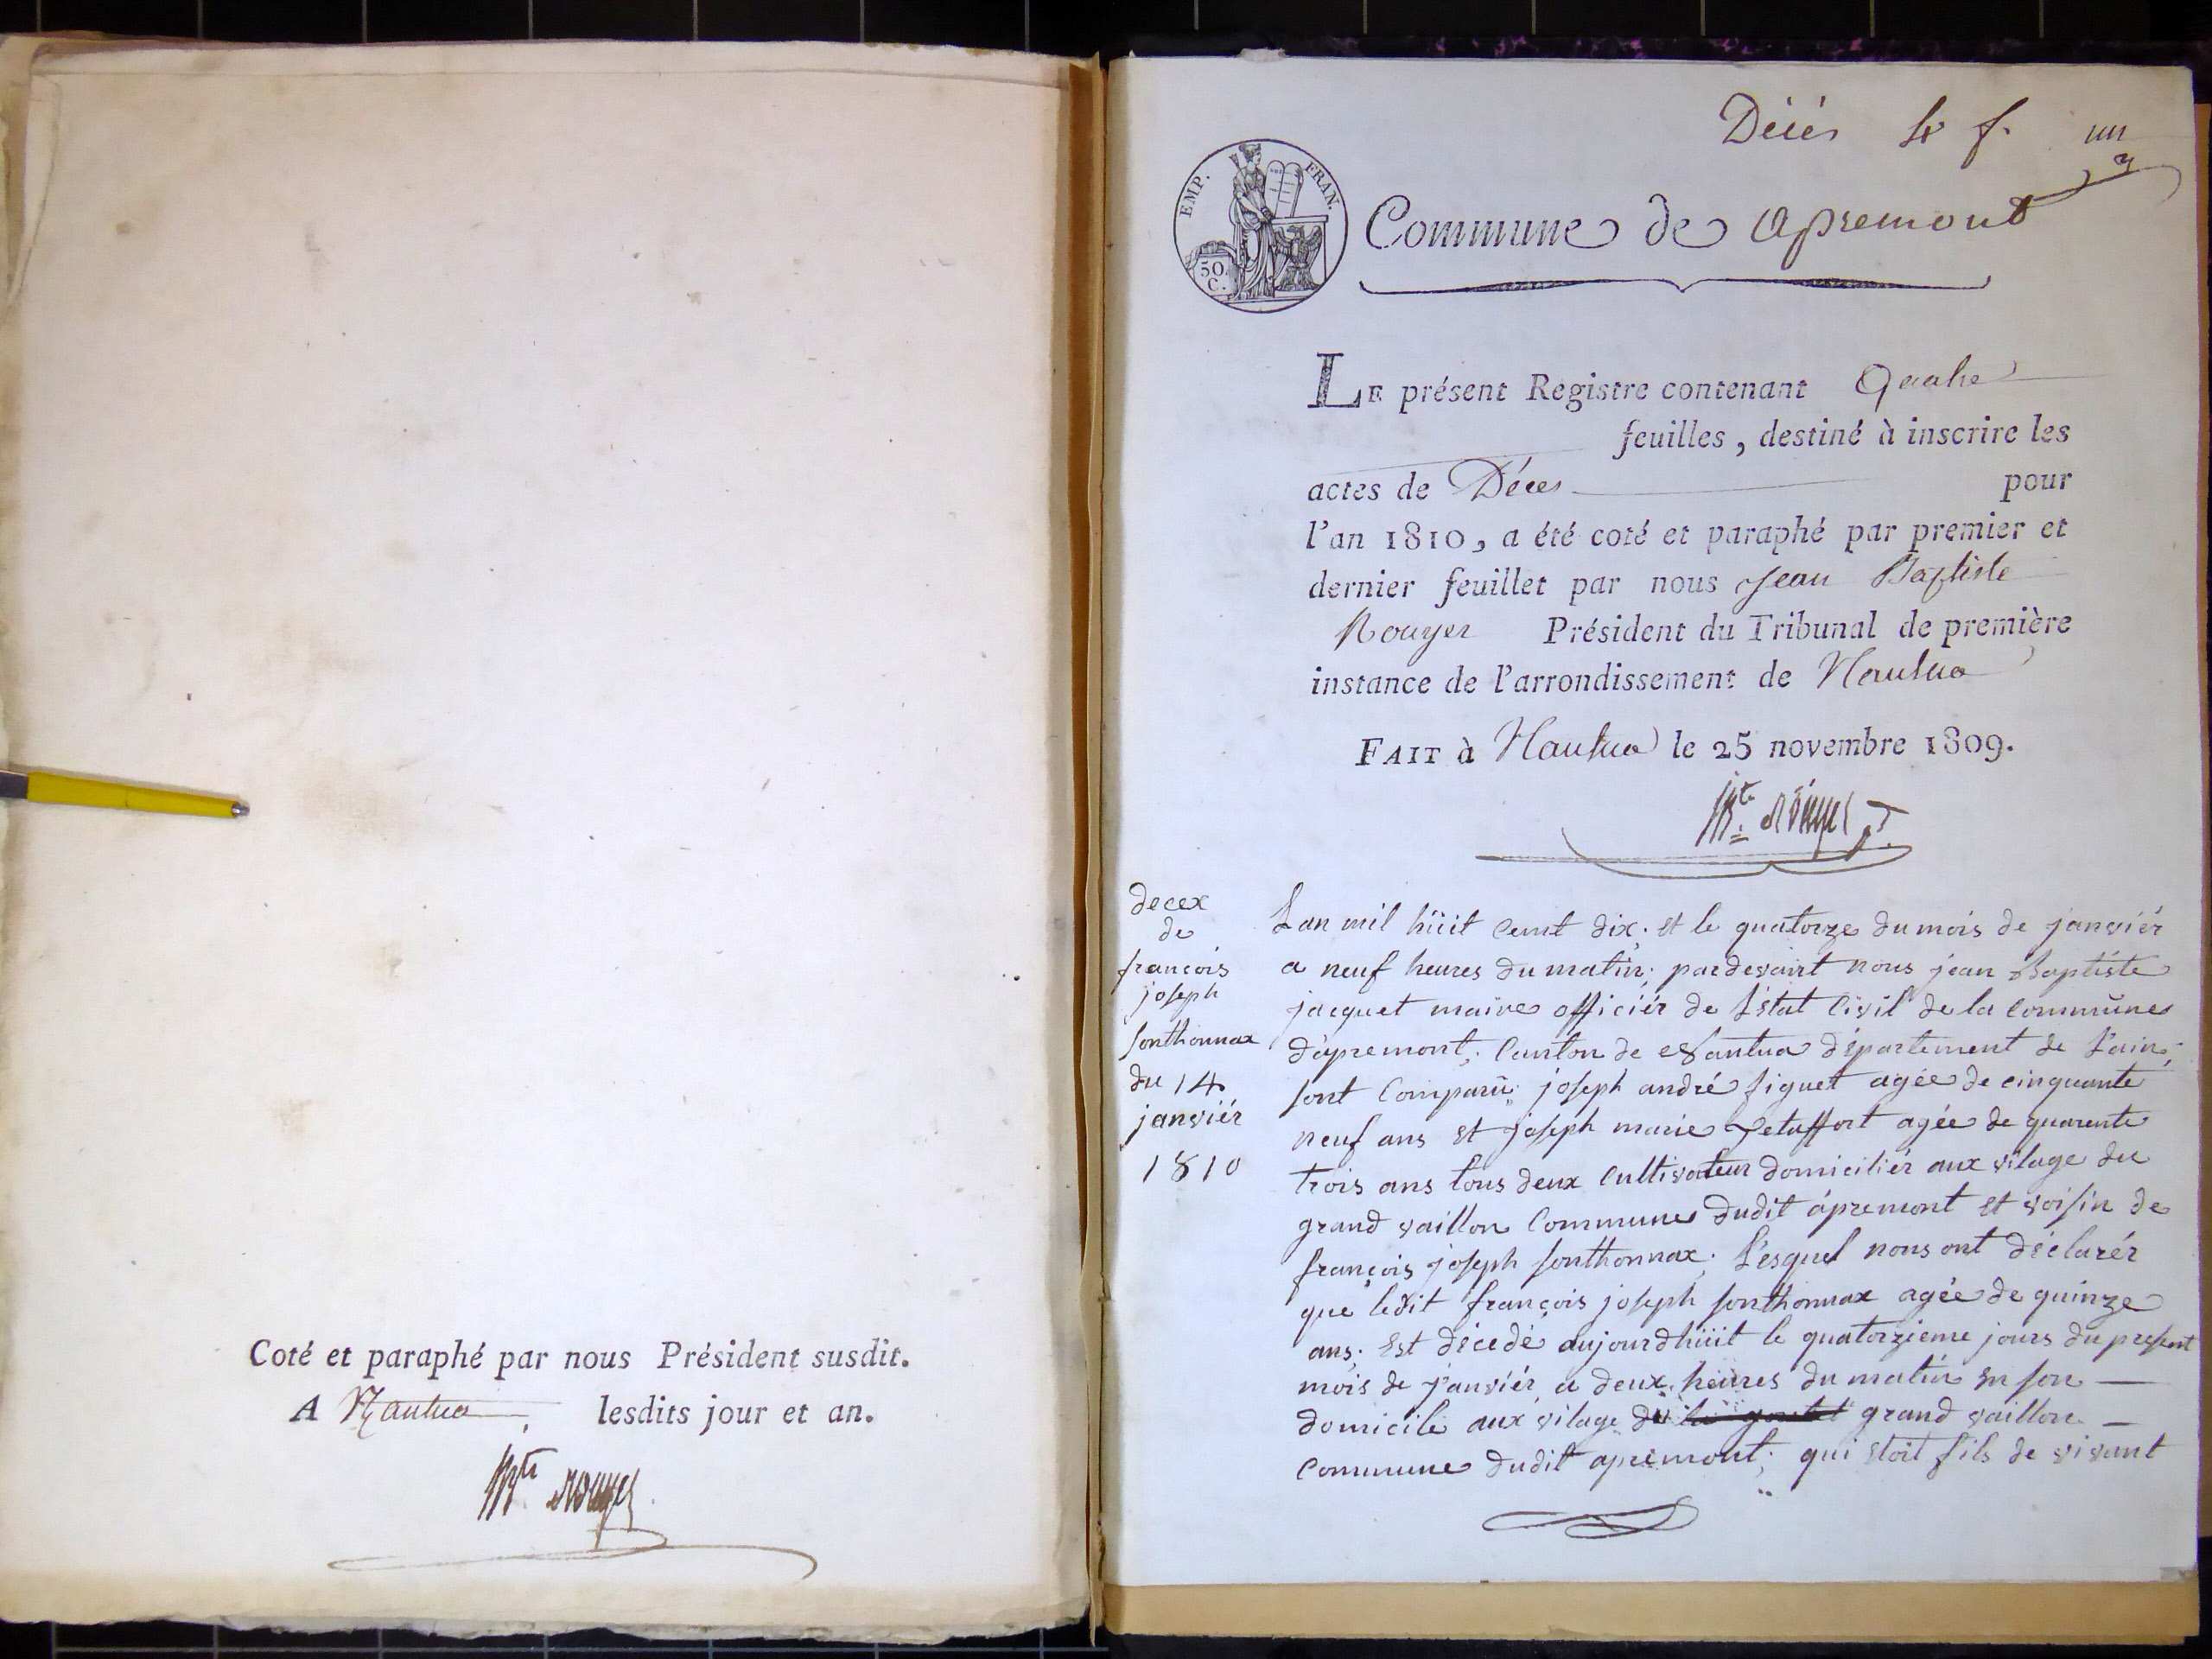 Coté et paraphé par nous Président susdit.
A Nantua lesdits jour et an.
Bte Rouyer
Décès 4 f. un
EMP. FRAN.
50 C.
Commune de apremont
LE présent Registre contenant Quatre
feuilles, destiné à inscrire les
actes de Décès pour
l'an 1810, a été coté et paraphé par premier et
dernier feuillet par nous Jean Baptiste
Rouyer Président du Tribunal de première
instance de l'arrondissement de Nantua
FAIT à Nantua le 25 novembre 1809.
Bte Rouyer
decex
de
françois
joseph
sonthonnax
du 14
janviér
1810
L'an mil hüit cent dix. et le quatorze du mois de janviér
a neuf heures du matin; pardevant nous jean Baptiste
jacquet maire officiér de L'état Civil de la commune
d'apremont; Canton de Nantua département de L'ain;
sont Comparü joseph andré figuet agée de cinquante
neuf ans et joseph marie Petuffort agée de quarente
trois ans tous deux Cultivateur domiciliér aux vilage du
grand vaillon Commune dudit apremont et voisin de
françois joseph sonthonnax; L'esquel nous ont déclarér
que ledit françois joseph sonthonnax agée de quinze
ans; Est décedé aujourdhüit le quatorzieme jours du present
mois de janviér a deux heures du matin en son —
domicile aux vilage du grand vaillon —
Commune dudit apremont; qui étoit fils de vivant